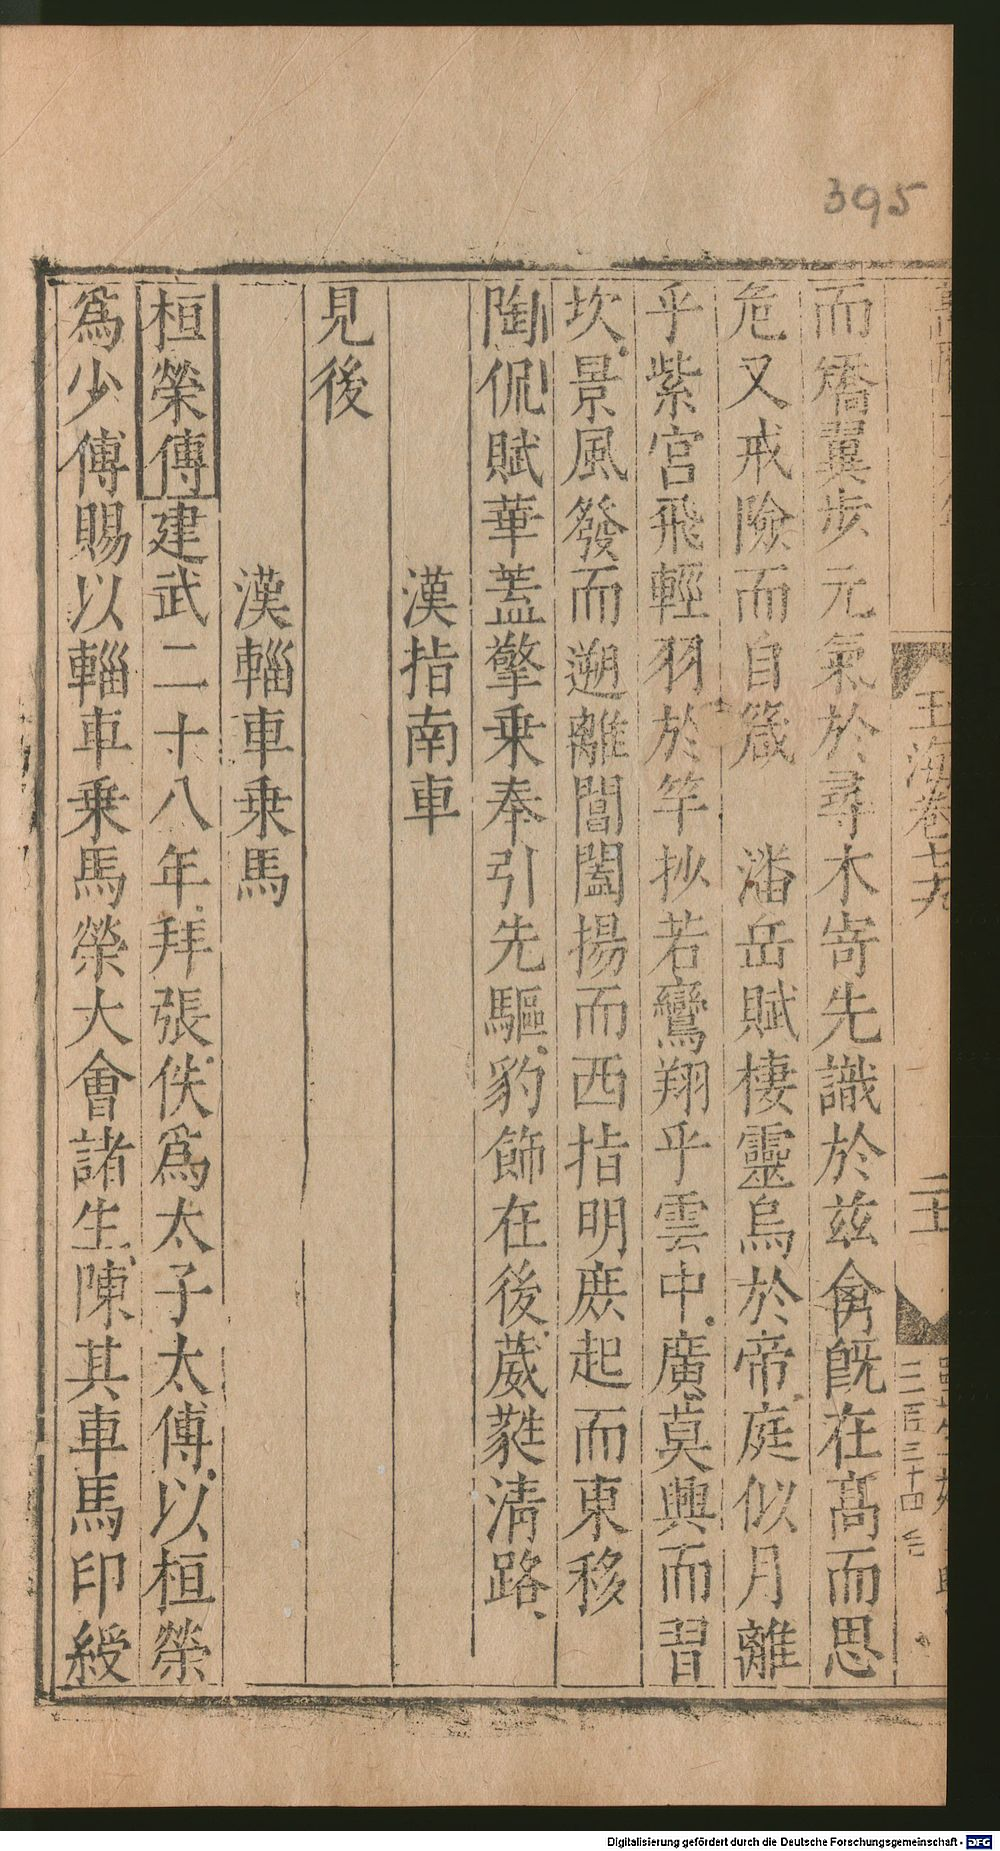 395
玉海卷七十九
二十五
三百三十四
而矯翼步元氣於尋木寄先識於兹禽旣在高而思
危又戒險而自箴 潘岳賦棲靈烏於帝庭似月離
乎紫宮飛輕羽於竿抄若鸞翔乎雲中廣莫興而習
坎景風發而遡離閶闔揚而西指明庶起而東移
陶侃賦華蓋擎乗奉引先驅豹飾在後葳蕤清路
漢指南車
見後
漢輜車乗馬
桓榮傳建武二十八年拜張佚爲太子太傅以桓榮
爲少傅賜以輜車乗馬榮大會諸生陳其車馬印綬
Digitalisierung gefördert durch die Deutsche Forschungsgemeinschaft - DFG